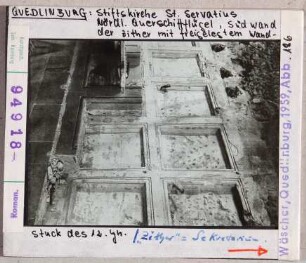 QUEDLINBURG: Stiftskirche St. Servatius
Nördl. Querschiffflügel, Südwand
der Zither mit freigelegtem Wand-
94918-
Roman.
Wäscher, Quedlinburg, 1959, Abb. 186
Stuck des 12. Jh.
"Zither" = Sekretarium